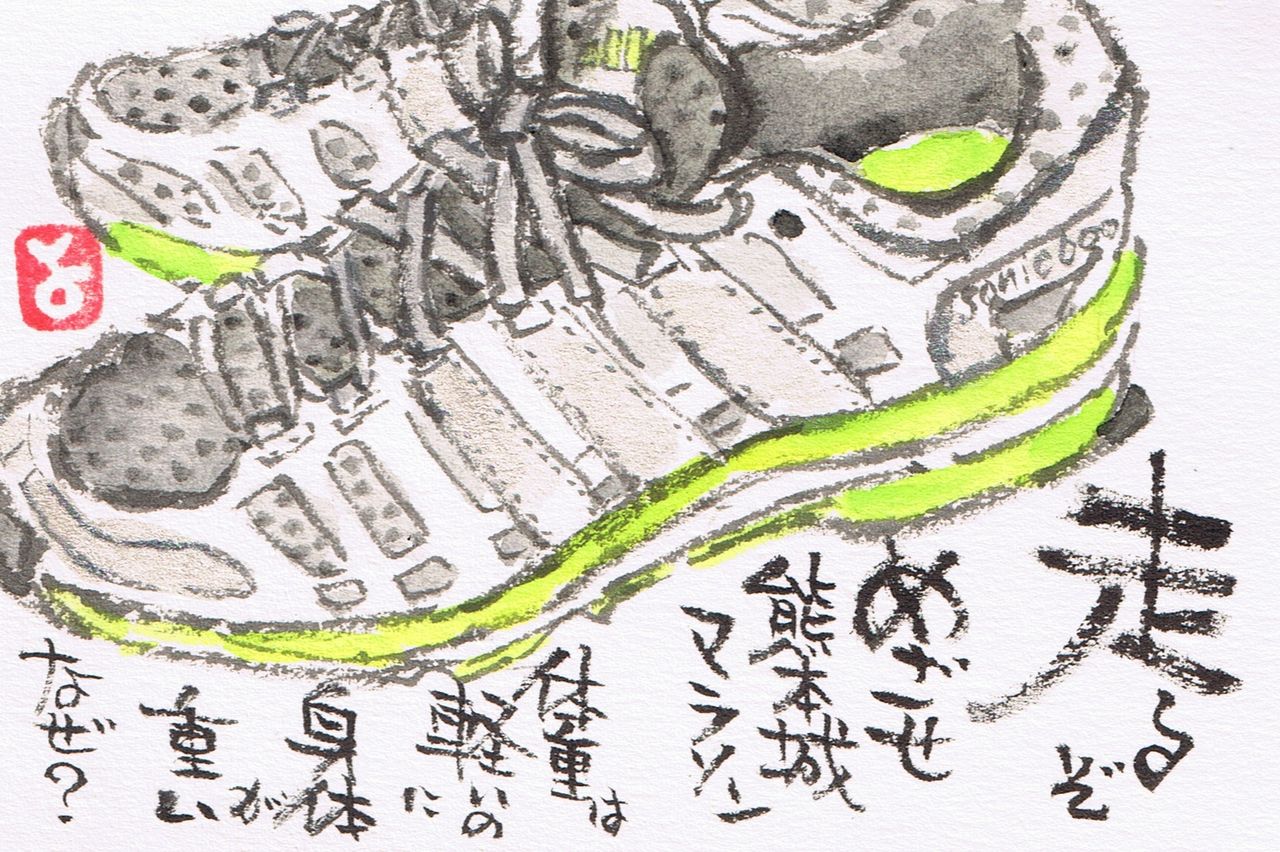 走るぞ
めざせ
熊本城
マラソン
体重は
軽いのに
身体が
重い
なぜ?
sonicboo